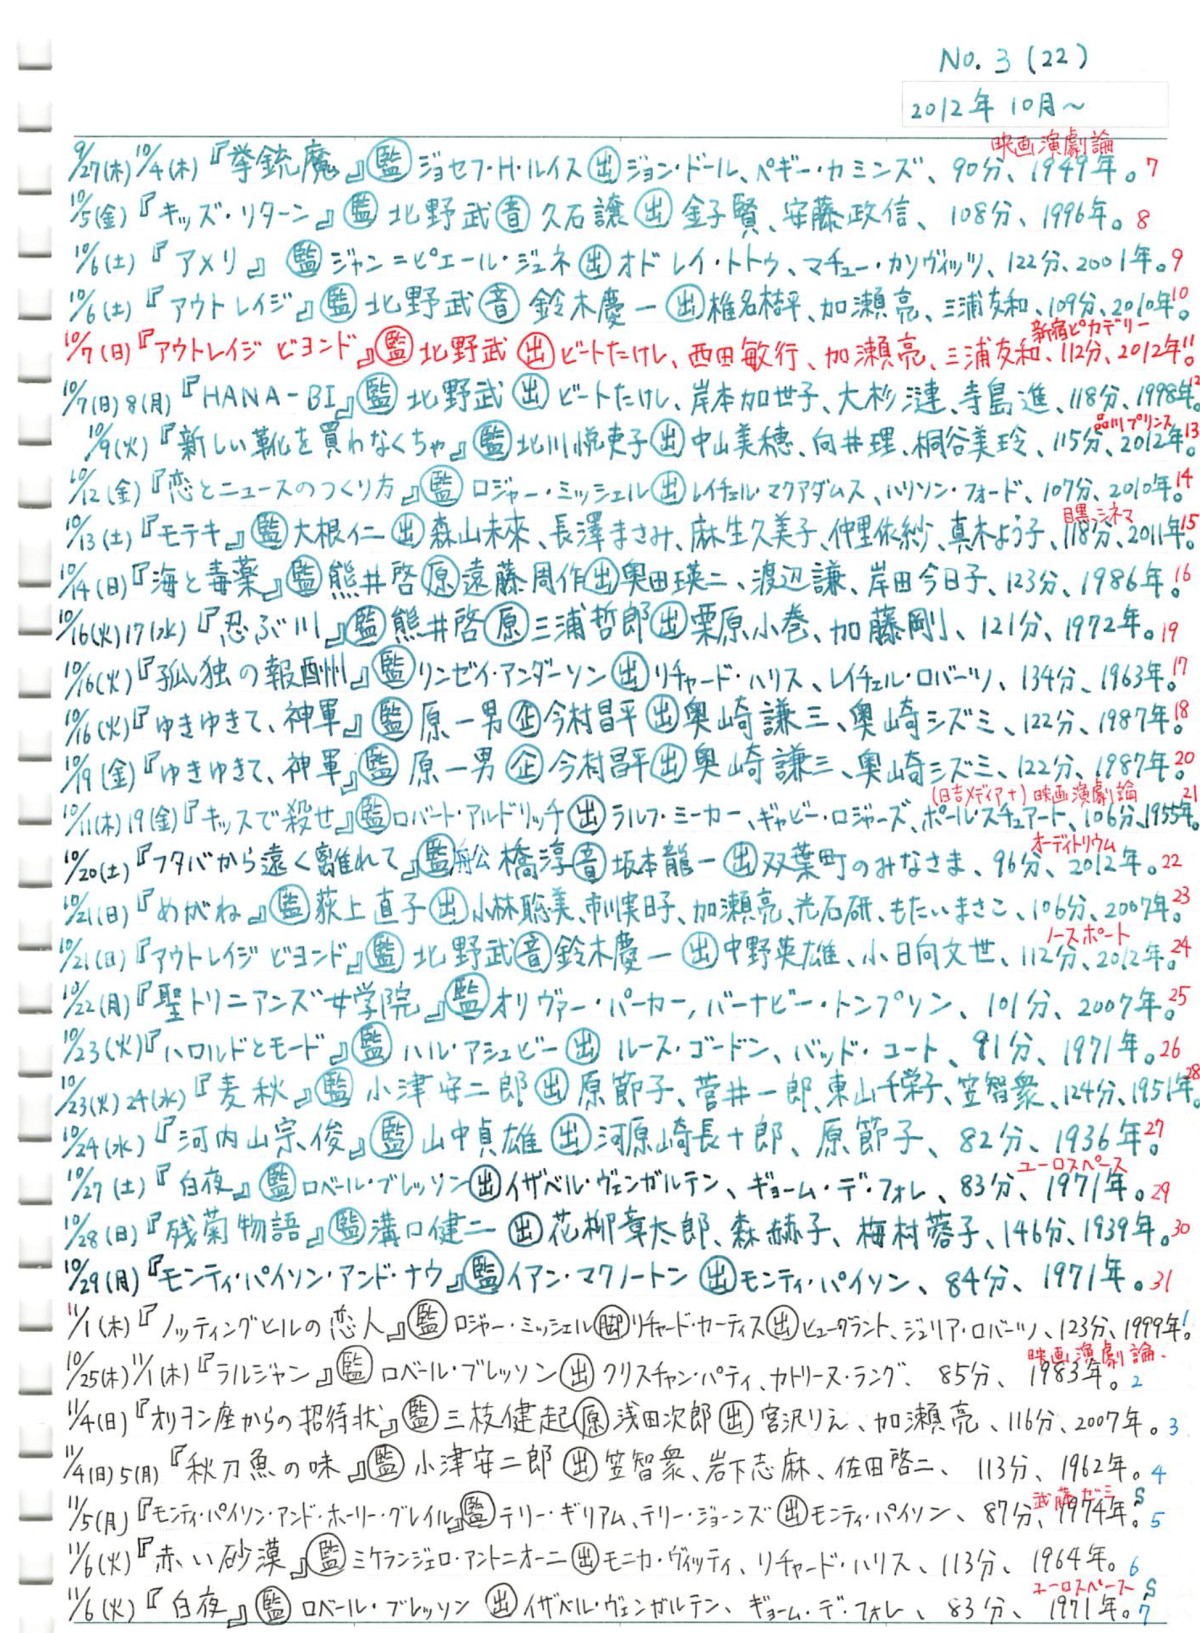 No. 3 (22)
2012年 10月～
映画演劇論
9/27(木)10/4(木)『拳銃魔』監 ジョセフ・H・ルイス 出 ジョン・ドール、ペギー・カミンズ、90分、1949年。7
10/5(金)『キッズ・リターン』監 北野武 音 久石譲 出 金子賢、安藤政信、108分、1996年。8
10/6(土)『アメリ』監 ジャン=ピエール・ジュネ 出 オドレイ・トトゥ、マチュー・カソヴィッツ、122分、2001年。9
10/6(土)『アウトレイジ』監 北野武 音 鈴木慶一 出 椎名桔平、加瀬亮、三浦友和、109分、2010年。10
新宿ピカデリー
10/7(日)『アウトレイジ ビヨンド』監 北野武 出 ビートたけし、西田敏行、加瀬亮、三浦友和、112分、2012年。11
10/7(日)8(月)『HANA-BI』監 北野武 出 ビートたけし、岸本加世子、大杉漣、寺島進、118分、1998年。12
品川プリンス
10/9(火)『新しい靴を買わなくちゃ』監 北川悦吏子 出 中山美穂、向井理、桐谷美玲、115分、2012年。13
10/12(金)『恋とニュースのつくり方』監 ロジャー・ミッシェル 出 レイチェル・マクアダムス、ハリソン・フォード、107分、2010年。14
目黒シネマ
10/13(土)『モテキ』監 大根仁 出 森山未來、長澤まさみ、麻生久美子、仲里依紗、真木よう子、118分、2011年。15
10/14(日)『海と毒薬』監 熊井啓 原 遠藤周作 出 奥田瑛二、渡辺謙、岸田今日子、123分、1986年。16
10/16(火)17(水)『忍ぶ川』監 熊井啓 原 三浦哲郎 出 栗原小巻、加藤剛、121分、1972年。19
10/16(火)『孤独の報酬』監 リンゼイ・アンダーソン 出 リチャード・ハリス、レイチェル・ロバーツ、134分、1963年。17
10/16(火)『ゆきゆきて、神軍』監 原一男 企 今村昌平 出 奥崎謙三、奥崎シズミ、122分、1987年。18
10/19(金)『ゆきゆきて、神軍』監 原一男 企 今村昌平 出 奥崎謙三、奥崎シズミ、122分、1987年。20
(日吉メディア+) 映画演劇論
10/11(木)19(金)『キッスで殺せ』監 ロバート・アルドリッチ 出 ラルフ・ミーカー、ギャビー・ロジャーズ、ポール・スチュアート、106分、1955年。21
オーディトリウム
10/20(土)『フタバから遠く離れて』監 舩橋淳 音 坂本龍一 出 双葉町のみなさま、96分、2012年。22
10/21(日)『めがね』監 荻上直子 出 小林聡美、市川実日子、加瀬亮、光石研、もたいまさこ、106分、2007年。23
ノースポート
10/21(日)『アウトレイジ ビヨンド』監 北野武 音 鈴木慶一 出 中野英雄、小日向文世、112分、2012年。24
10/22(月)『聖トリニアンズ女学院』監 オリヴァー・パーカー, バーナビー・トンプソン、101分、2007年。25
10/23(火)『ハロルドとモード』監 ハル・アシュビー 出 ルース・ゴードン、バッド・コート、91分、1971年。26
10/23(火)24(水)『麦秋』監 小津安二郎 出 原節子、菅井一郎、東山千栄子、笠智衆、124分、1951年。28
10/24(水)『河内山宗俊』監 山中貞雄 出 河原崎長十郎、原節子、82分、1936年。27
ユーロスペース
10/27(土)『白夜』監 ロベール・ブレッソン 出 イザベル・ヴェンガルテン、ギョーム・デ・フォレ、83分、1971年。29
10/28(日)『残菊物語』監 溝口健二 出 花柳章太郎、森赫子、梅村蓉子、146分、1939年。30
10/29(月)『モンティ・パイソン・アンド・ナウ』監 イアン・マクノートン 出 モンティ・パイソン、84分、1971年。31
11/1(木)『ノッティングヒルの恋人』監 ロジャー・ミッシェル 脚 リチャード・カーティス 出 ヒュー・グラント、ジュリア・ロバーツ、123分、1999年。1
映画演劇論.
10/25(木)11/1(木)『ラルジャン』監 ロベール・ブレッソン 出 クリスチャン・パティ、カトリーヌ・ラング、85分、1983年。2
11/4(日)『オリヲン座からの招待状』監 三枝健起 原 浅田次郎 出 宮沢りえ、加瀬亮、116分、2007年。3
11/4(日)5(月)『秋刀魚の味』監 小津安二郎 出 笠智衆、岩下志麻、佐田啓二、113分、1962年。4
武藤ゼミ S
11/5(月)『モンティ・パイソン・アンド・ホーリー・グレイル』監 テリー・ギリアム、テリー・ジョーンズ 出 モンティ・パイソン、87分、1974年。5
11/6(火)『赤い砂漠』監 ミケランジェロ・アントニオーニ 出 モニカ・ヴィッティ、リチャード・ハリス、113分、1964年。6
ユーロスペース S
11/6(火)『白夜』監 ロベール・ブレッソン 出 イザベル・ヴェンガルテン、ギョーム・デ・フォレ、83分、1971年。7